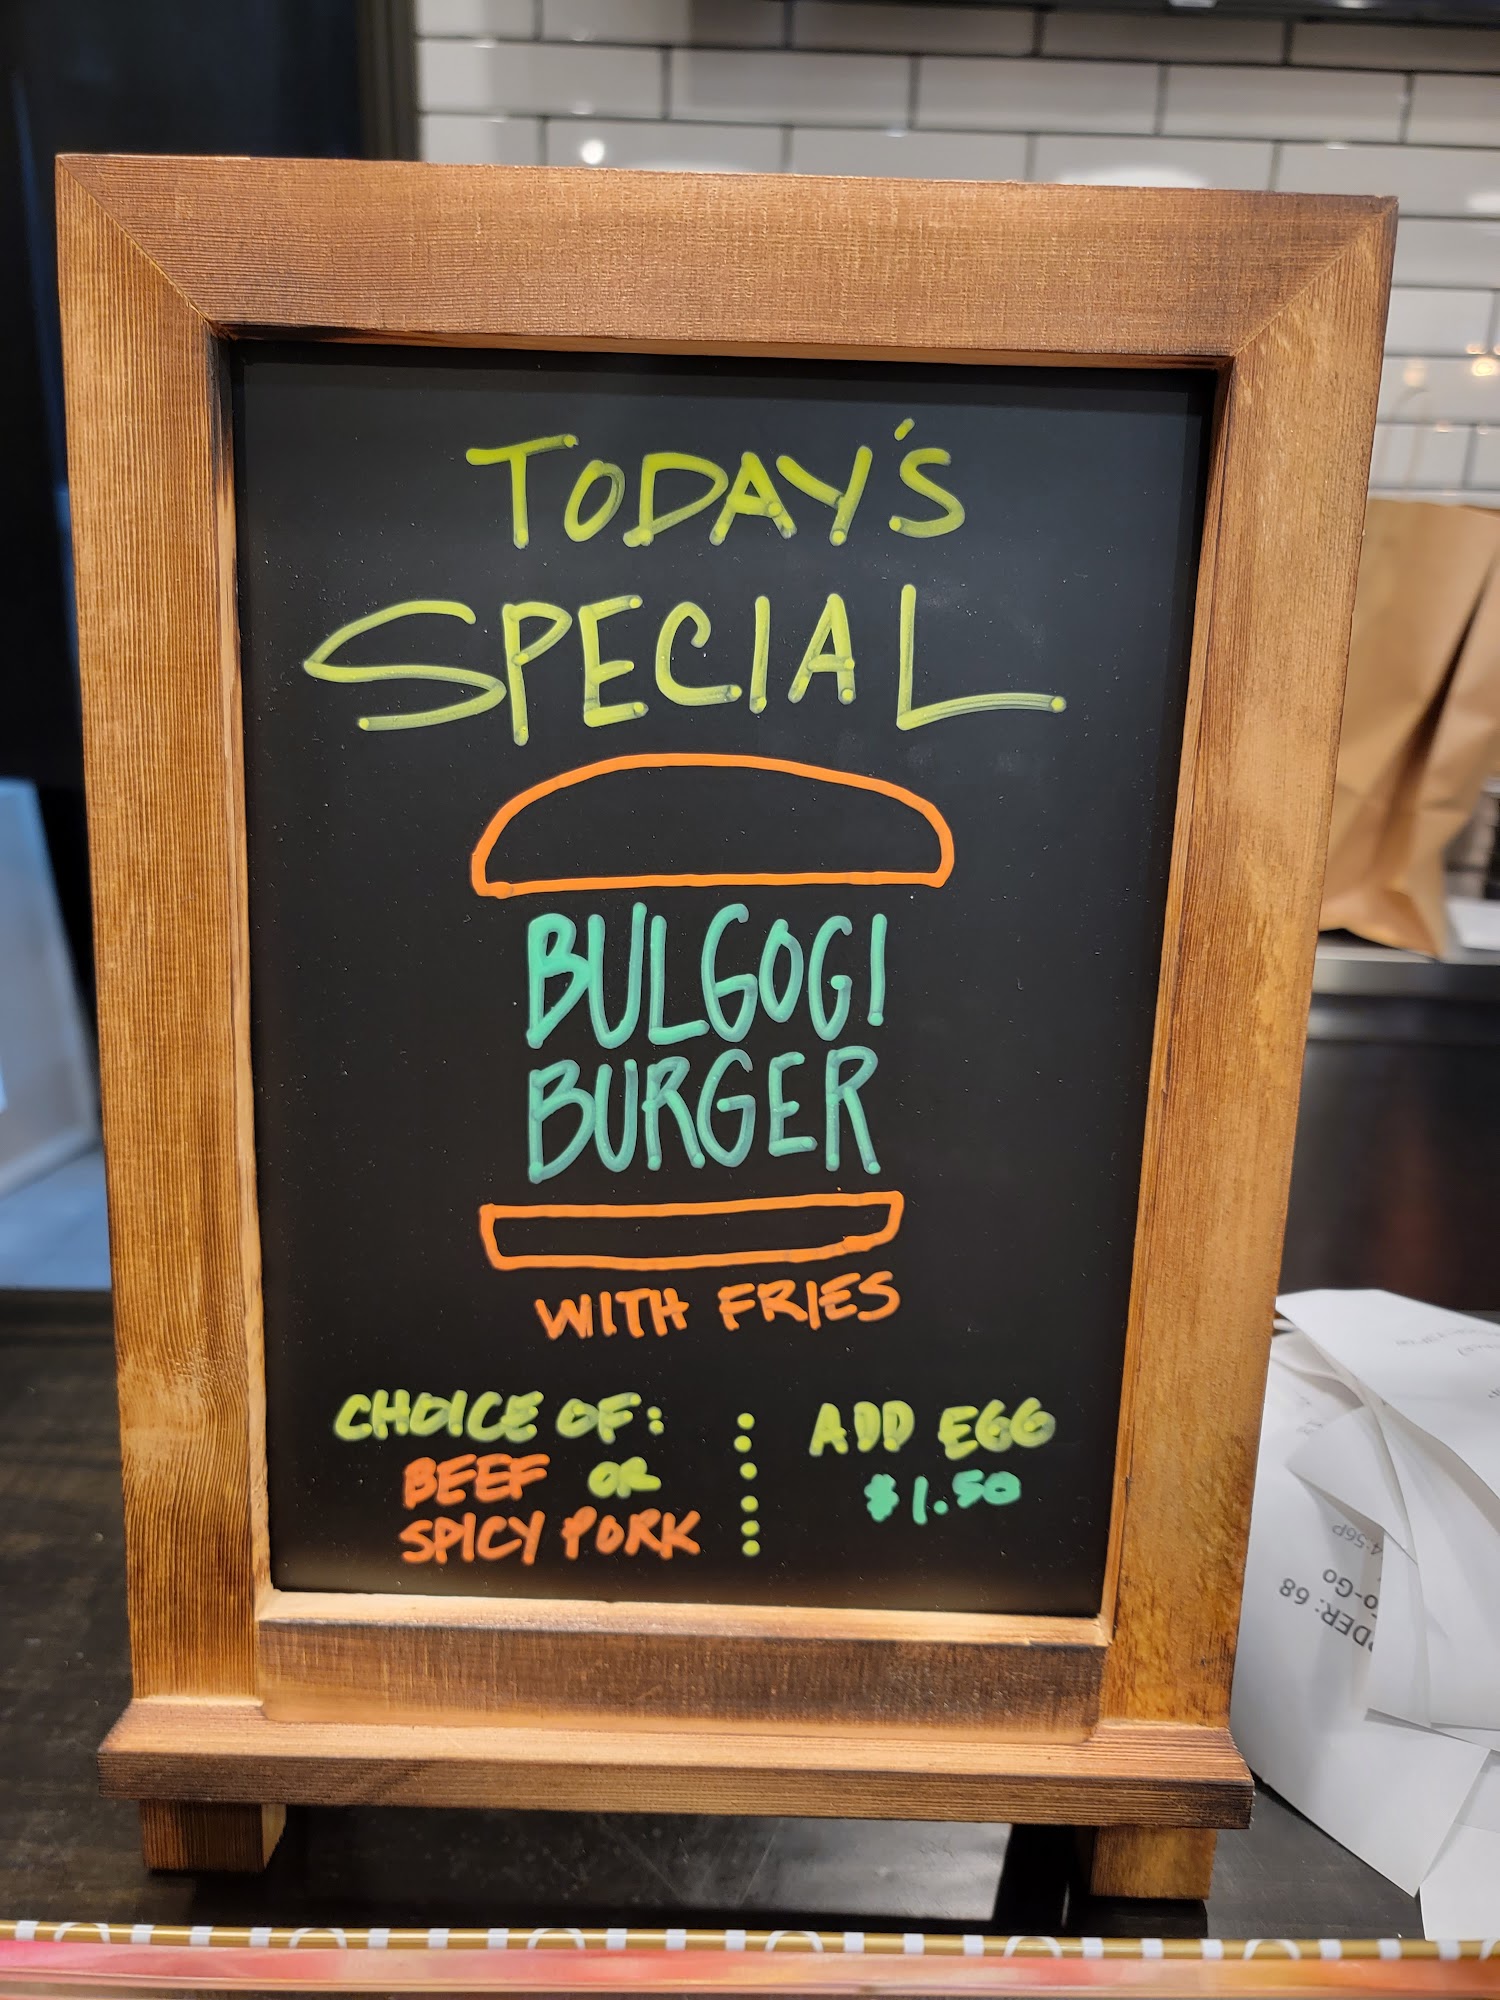 TODAY'S
SPECIAL
BULGOGI
BURGER
WITH FRIES
CHOICE OF:
BEEF OR
SPICY PORK
ADD EGG
$1.50
4:56P
o-Go
DER: 68